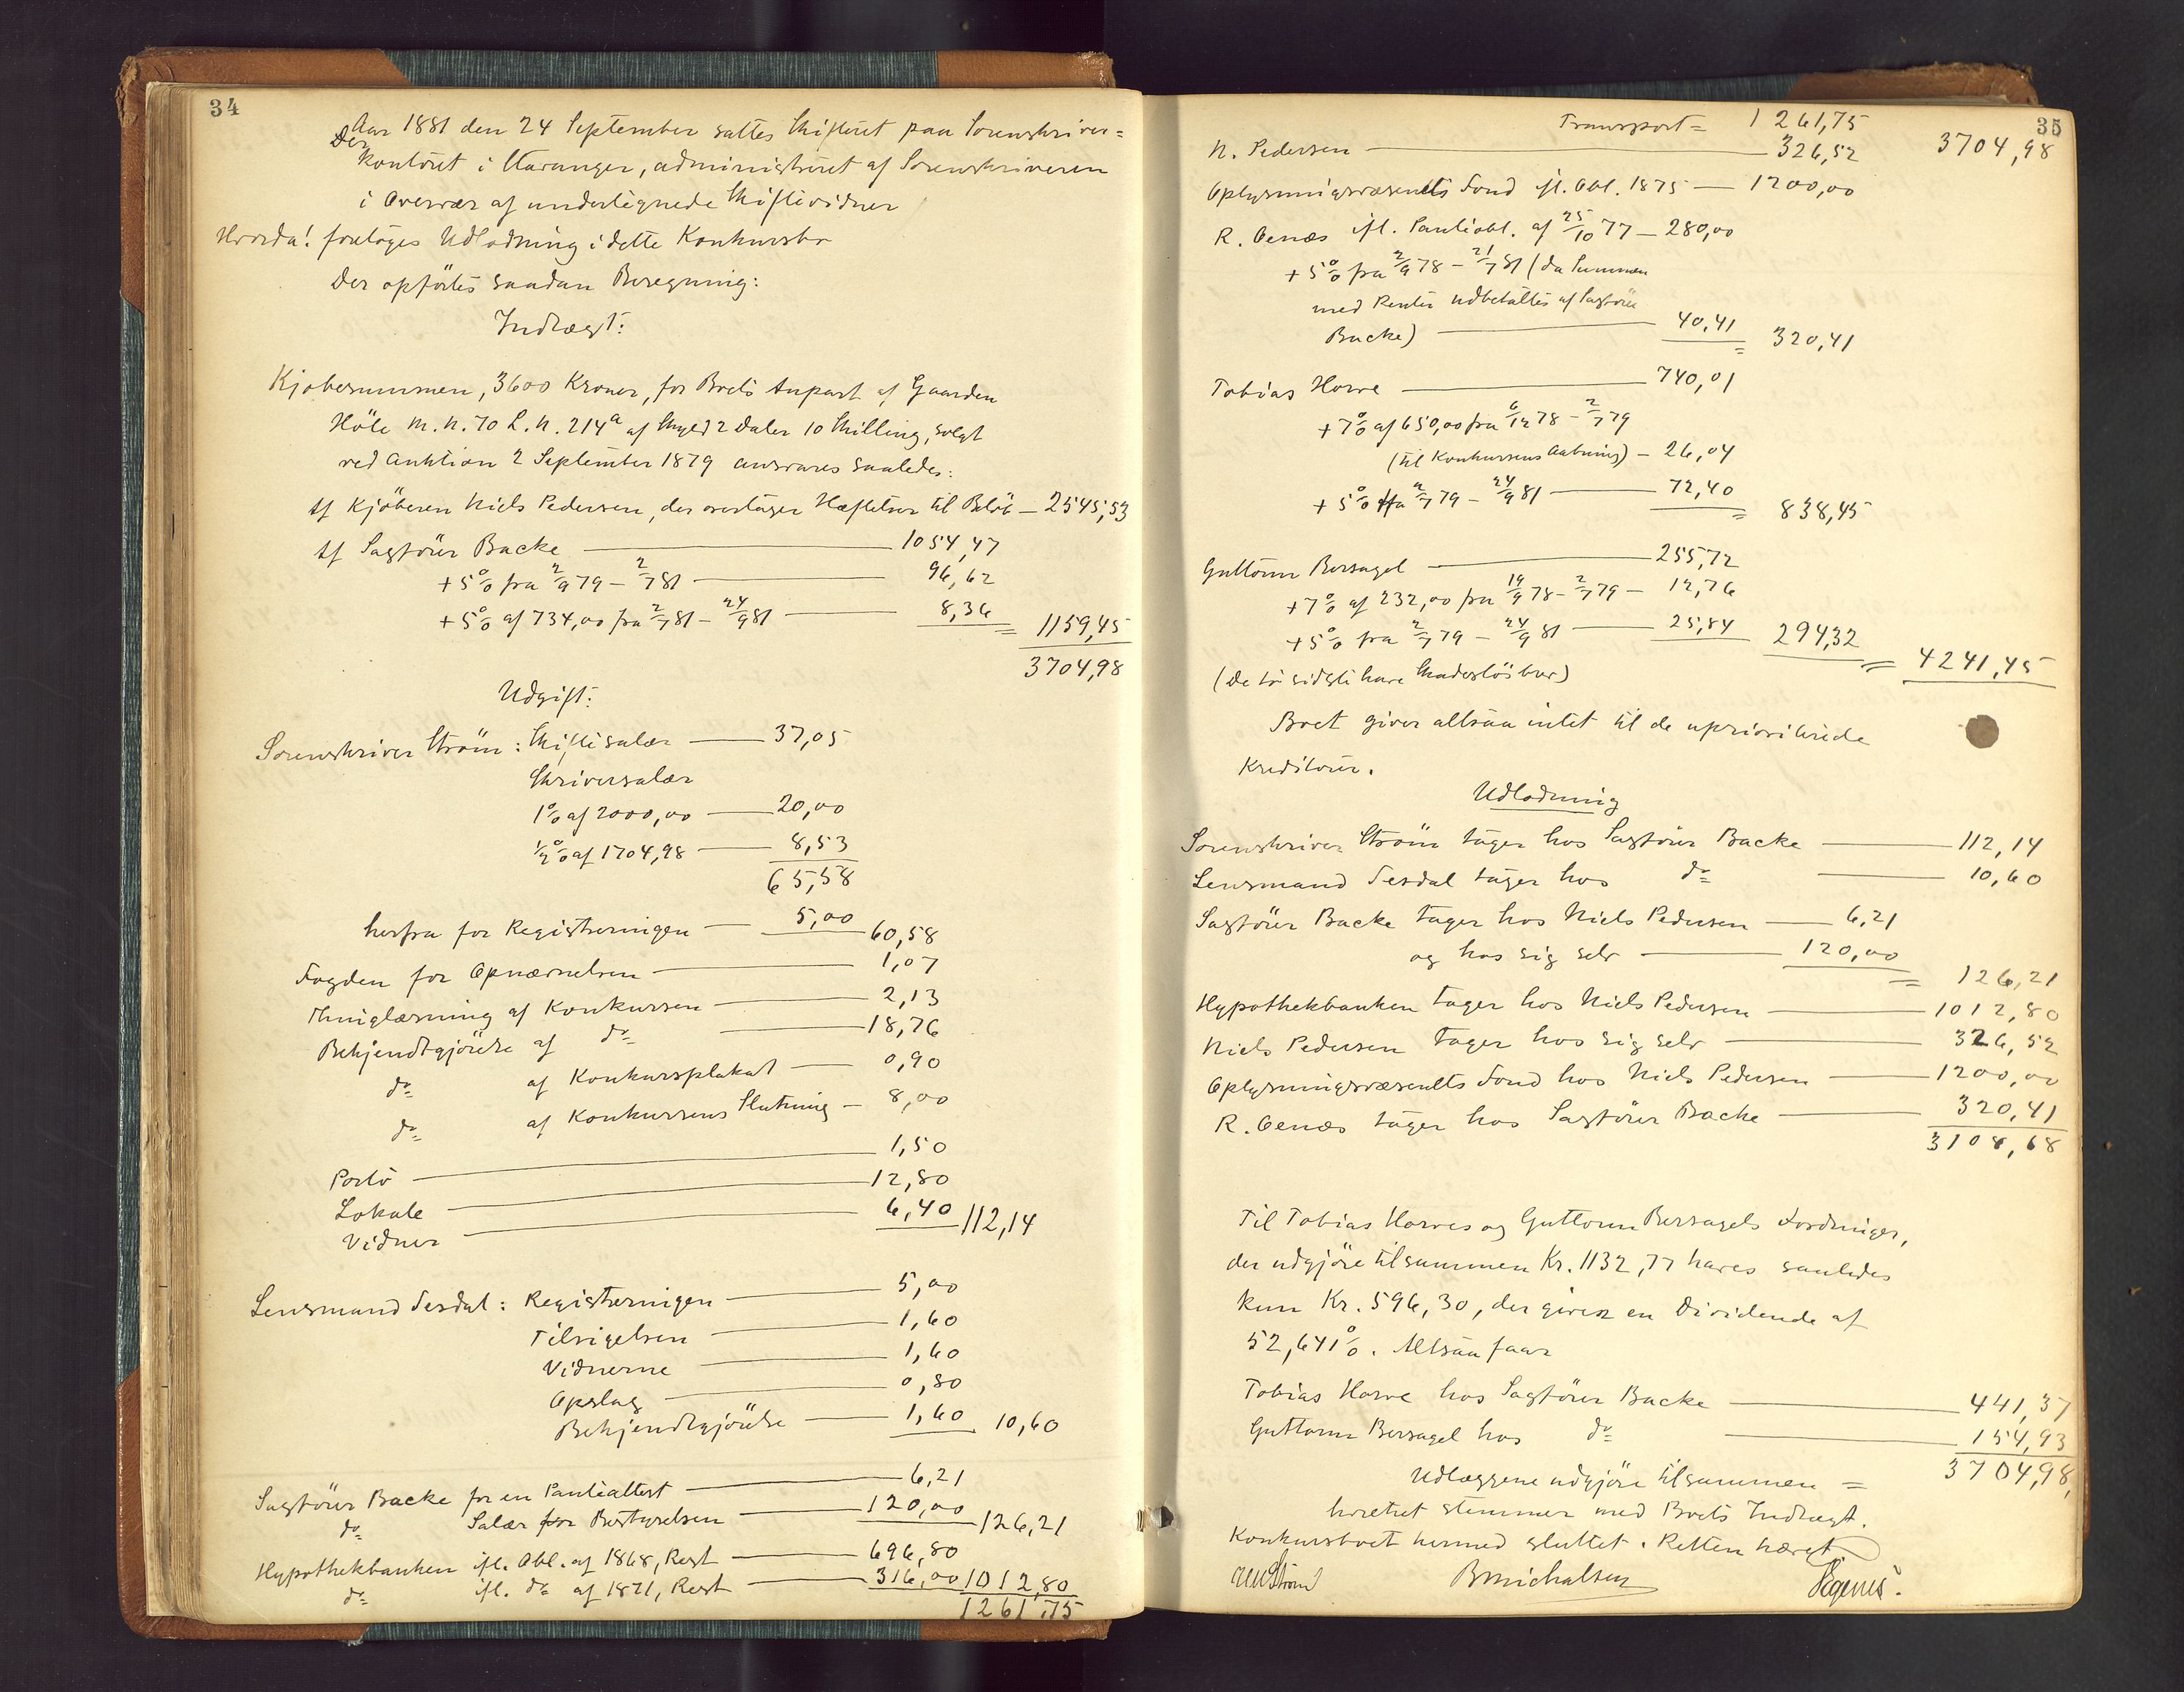 34
Aar 1881 den 24 September sattes Skifteret paa Sorenskriver=
kontoret i Stavanger, administreret af Sorenskriveren
i Overvær af undertegnede Skiftevidner
Hvorda! foretoges Udlodning i dette Konkursbo
Der opførtes saadan Beregning:
Indtægt:
Kjøbesummen, 3600 Kroner, for Boets Anpart af Gaarden
Høle M. N. 70 L. N. 214a af Skyld 2 Daler 10 Skilling, solgt
ved Auktion 2 September 1879 ansvares saaledes:
Af Kjøberen Niels Pedersen, der overtager Hæftelser til Beløb — 2545,53
Af Sagfører Backe — 1054,47
+ 5% fra 2/9 79 – 2/7 81 — 96,62
+ 5% af 734,00 fra 2/7 81 – 24/9 81 — 8,36 = 1159,45
3704,98
Udgift:
Sorenskriver Strøm: Skiftesalær — 37,05
Skriversalær
1% af 2000,00 — 20,00
1/2% af 1704,98 — 8,53
65,58
herfra for Registreringen — 5,00 60,58
Fogden for Opnævnelsen — 1,07
Thinglæsning af Konkursen — 2,13
Bekjendtgjørelse af do — 18,76
do af Konkursplakat — 0,90
do af Konkursens Slutning — 8,00
Porto — 1,50
Lokale — 12,80
Vidner — 6,40 112,14
Lensmand Tesdal: Registreringen — 5,00
Tilsigelsen — 1,60
Vidnerne — 1,60
Opslag — 0,80
Bekjendtgjørelse — 1,60 10,60
Sagfører Backe for en Panteattest — 6,21
do Salær for Bestyrelsen — 120,00 126,21
Hypothekbanken ifl. Obl. af 1868, Rest — 696,80
do ifl. do af 1871, Rest — 316,00 1012,80
1261,75
35
Transport = 1261,75
3704,98
N. Pedersen — 326,52
Oplysningsvæsenets Fond ifl. Obl. 1875 — 1200,00
R. Oenæs ifl. Panteobl. af 25/10 77 — 280,00
+ 5% fra 2/9 78 – 21/7 81 (da Summen
med Renter udbetaltes af Sagfører
Backe) — 40,41 = 320,41
Tobias Horve — 740,01
+ 7% af 650,00 fra 6/12 78 – 2/7 79
(til Konkursens Aabning) — 26,04
+ 5% fra 2/7 79 – 24/9 81 — 72,40 = 838,45
Guttorm Bersagel — 255,72
+ 7% af 232,00 fra 19/9 78 – 2/7 79 — 12,76
+ 5% fra 2/7 79 – 24/9 81 — 25,84 294,32 = 4241,45
(De to sidste have Skadesløsbrev)
Boet giver altsaa intet til de upriviligerede
Kreditorer.
Udlodning
Sorenskriver Strøm tager hos Sagfører Backe — 112,14
Lensmand Tesdal tager hos do — 10,60
Sagfører Backe tager hos Niels Pedersen — 6,21
og hos sig selv — 120,00 = 126,21
Hypothekbanken tager hos Niels Pedersen — 1012,80
Niels Pedersen tager hos sig selv — 326,52
Oplysningsvæsenets Fond hos Niels Pedersen — 1200,00
R. Oenæs tager hos Sagfører Backe — 320,41
3108,68
Til Tobias Horves og Guttorm Bersagels Fordringer,
der udgjøre tilsammen Kr. 1132,77 haves saaledes
kun Kr. 596,30, der giver en Dividende af
52,641%. Altsaa faar
Tobias Horve hos Sagfører Backe — 441,37
Guttorm Bersagel hos do — 154,93
Udlæggene udgjøre tilsammen = 3704,98,
hvilket stemmer med Boets Indtægt.
Konkursboet hermed sluttet. Retten hævet
Strøm B Michalsen